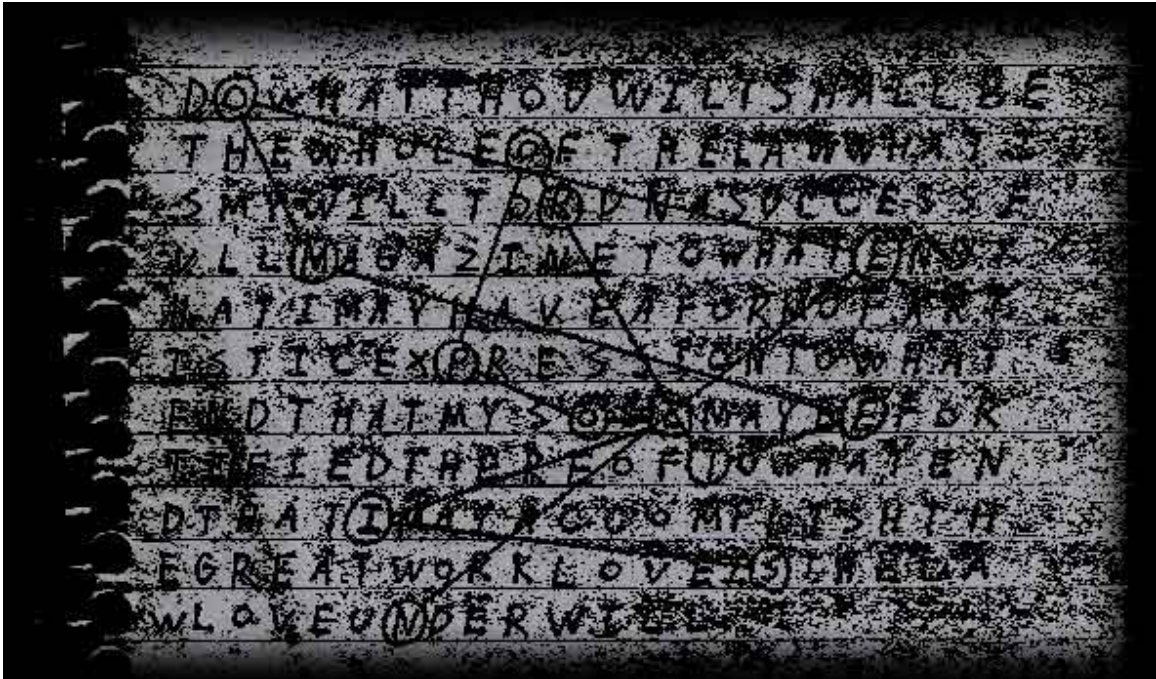 DOWHATTHOUWILTSHALLBE
THEWHOLEOFTHELAWWHATI
SMYWILLTORUNASUCCESSF
ULLMAGAZINETOWHATENDT
HATIMAYHAVEAFORMOFART
ISTICEXPRESSIONTOWHAT
ENDTHATMYSOULMAYBEFOR
TIFIEDTHEREOFTOWHATEN
DTHATIMAYACCOMPLISHTH
EGREATWORKLOVEISTHELA
WLOVEUNDERWILL